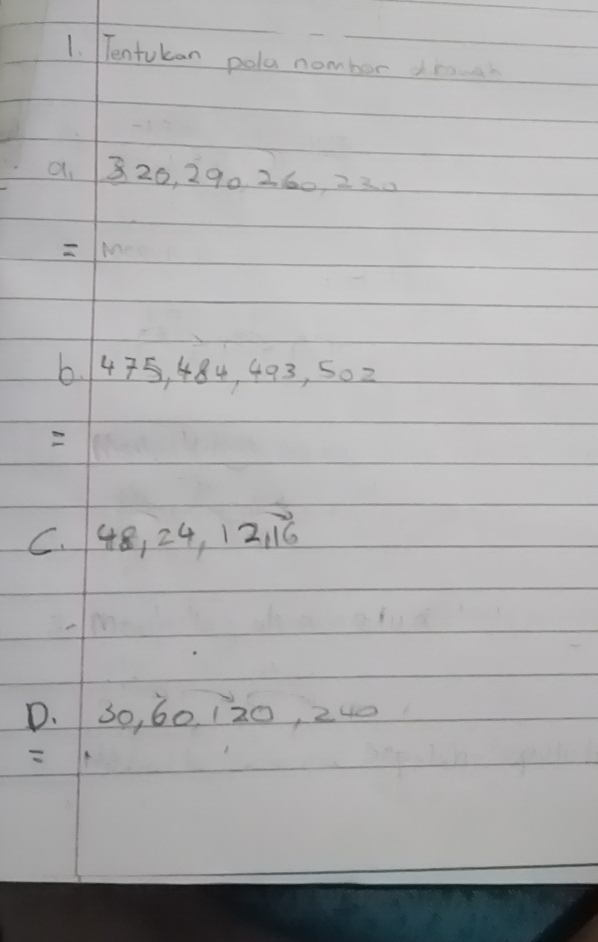 1. Tentukan pola nombor dibawah
a. 320, 290, 260, 230
=
b. 475, 484, 493, 502
=
C. 48, 24, 12, 16
D. 30, 60, 120, 240
=